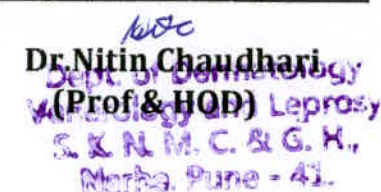 Dr.Nitin Chaudhari
Dept. of Dermatology
(Prof & HOD)
Venereology and Leprosy
S. K. N. M. C. & G. H.,
Narhe, Pune - 41.